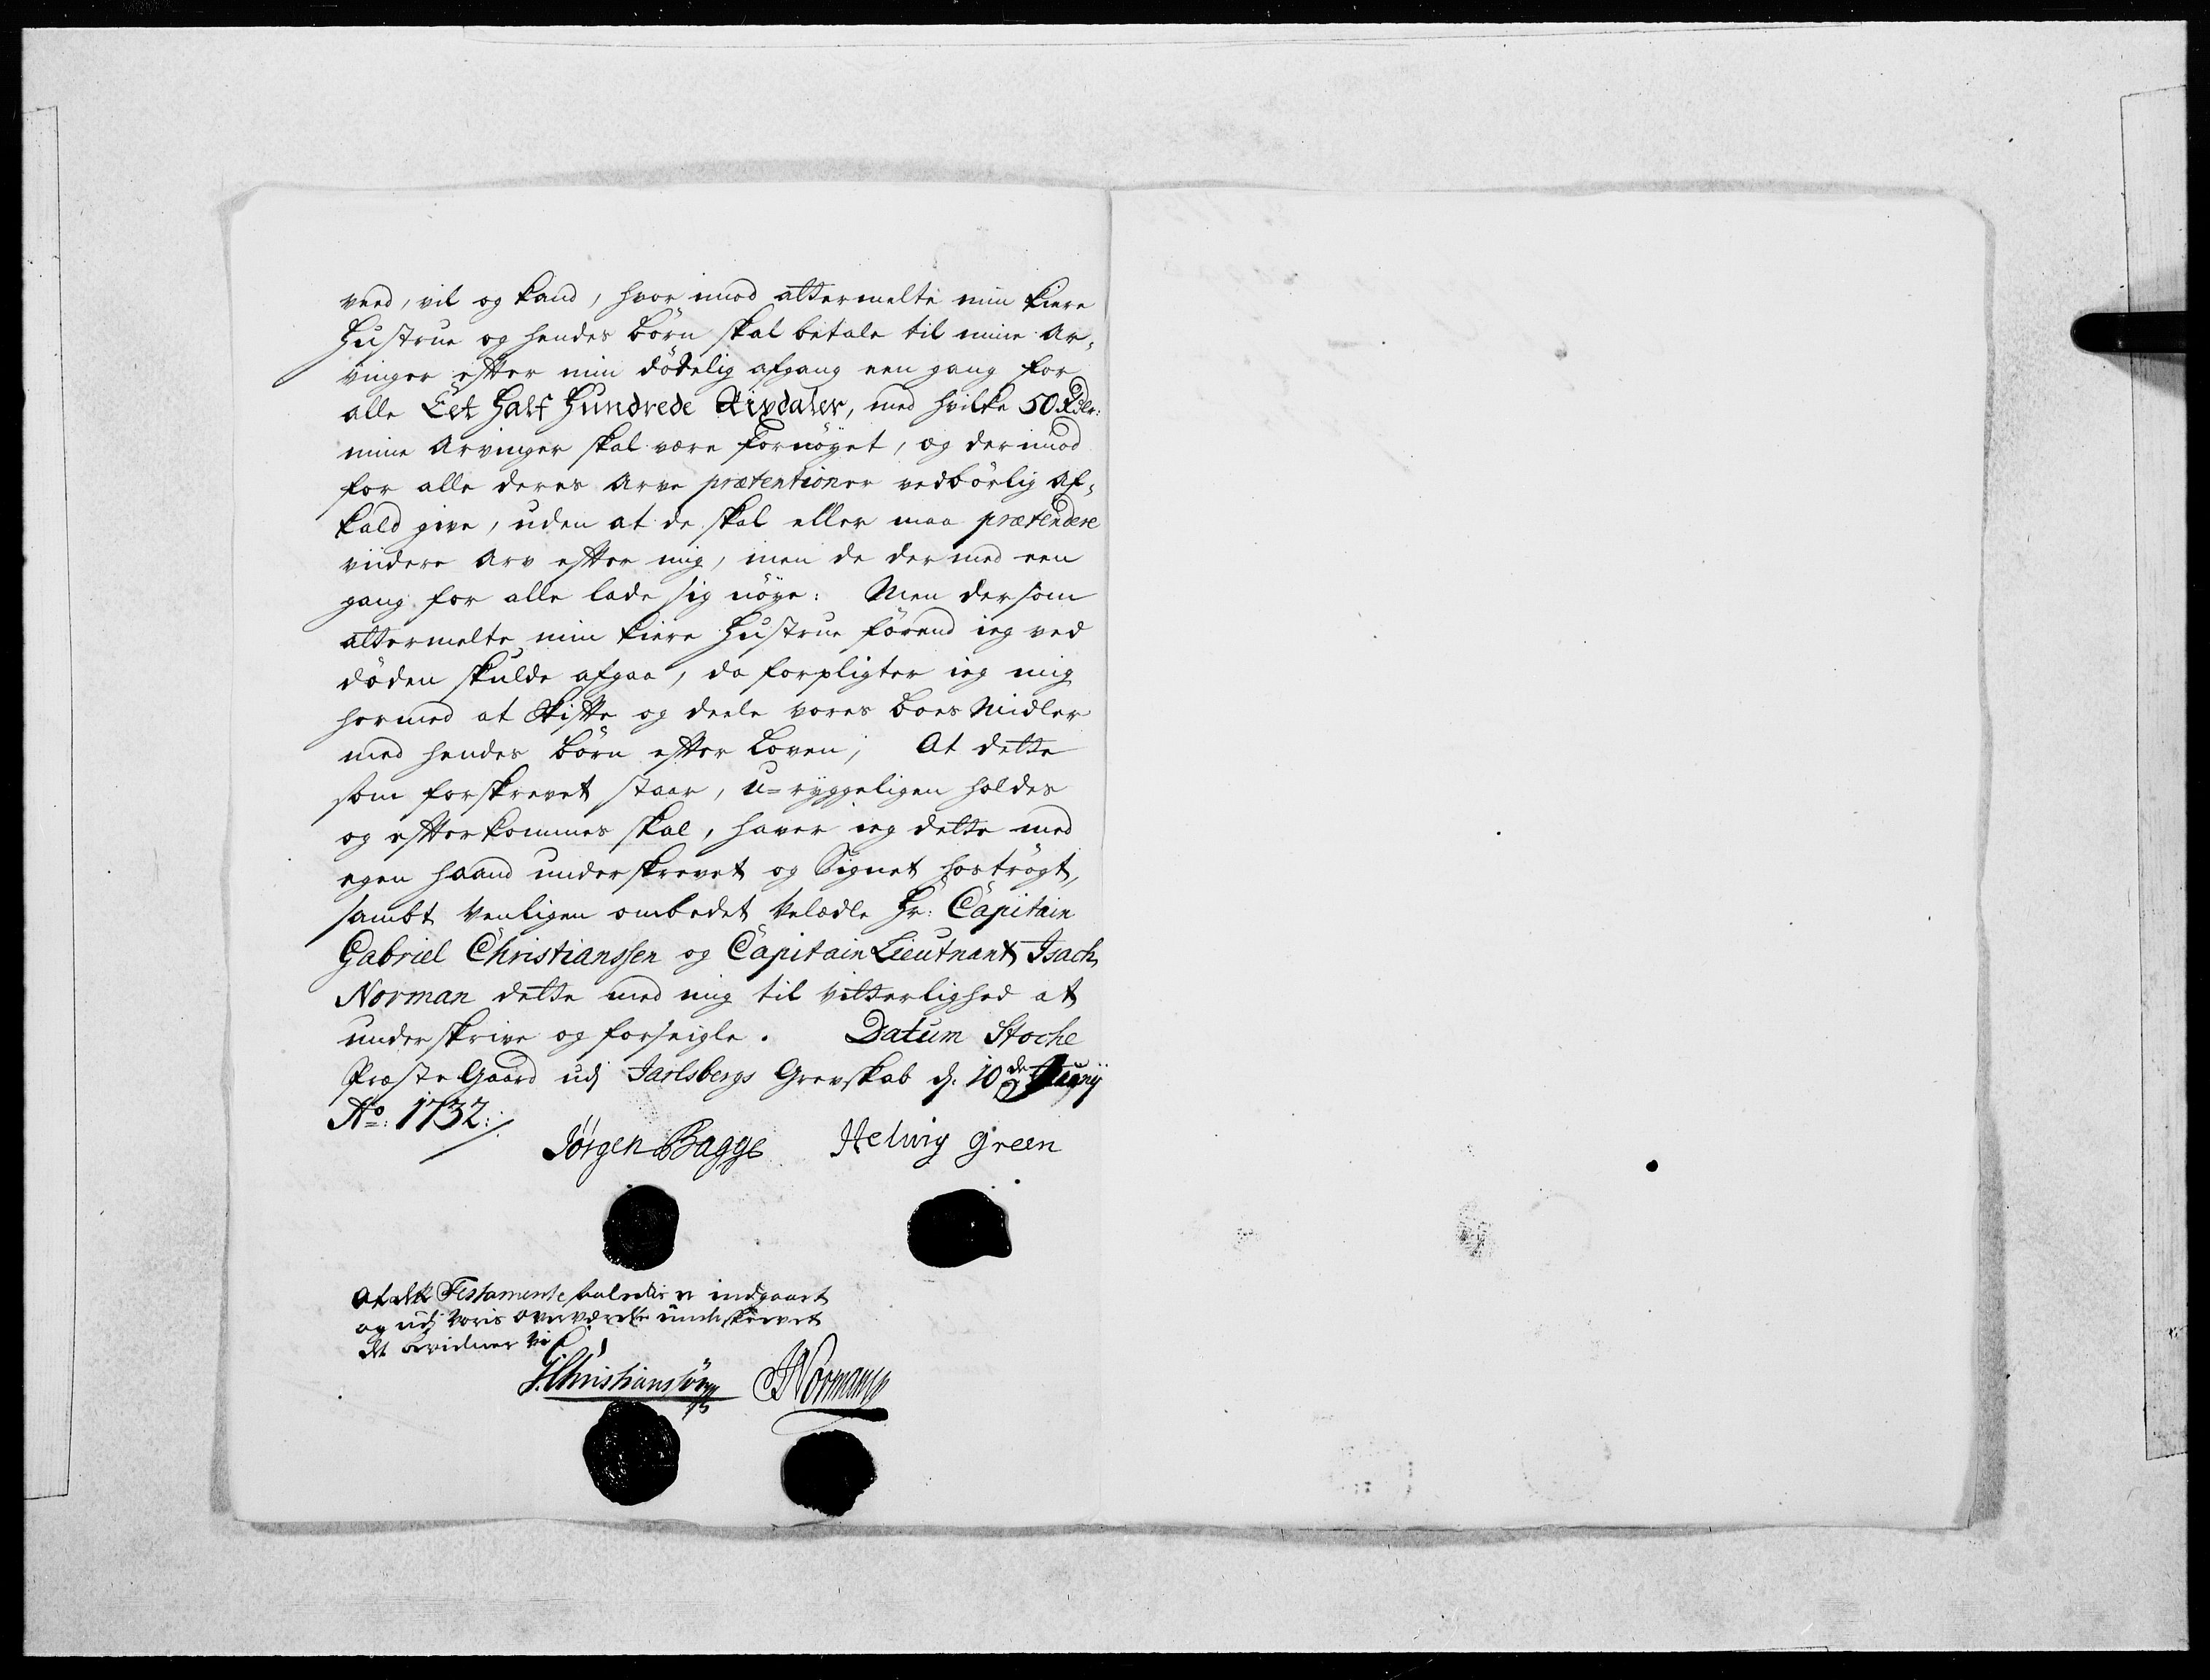 veed, vil og kand, hvor imod altermelte min kiere
Hustrue og hendes børn skal betale til mine Ar-
vinger efter min dödelig afgang een gang for
alle Eet Half Hundrede Rixdaler, med hvilke 50 Rdlr:
mine Arvinger skal være fornöyet, og der imod
for alle deres Arve prætentioner vedbörlig Af-
kald give, uden at de skal eller maa prætendere
viidere Arv efter mig, men de der med een
gang for alle lade sig nöye: Men dersom
altermelte min kiere Hustrue förend ieg ved
döden skulde afgaa, da forpligter ieg mig
hermed at Skifte og deele vores boes Midler
med hendes börn efter Loven; At dette
som forskrevet staar, u-ryggeligen holdes
og efterkommes skal, haver ieg dette med
egen haand underskrevet og Signet hoströgt,
sambt venligen ombedet Velædle Hr: Capitain
Gabriel Christianssen og Capitain Lieutnant Isach
Norman dette med mig til vitterlighed at
underskrive og forseigle. Datum Stocke
Præste Gaard udj Jarlsbergs Grevskab d: 10de
Ao: 1732:
Jörgen Bagge Helvig Green
At dette Testamente saaledes er indgaaet
og udj voris overværelse underskrevet
det bevidner vi
G: Christiansön INorman